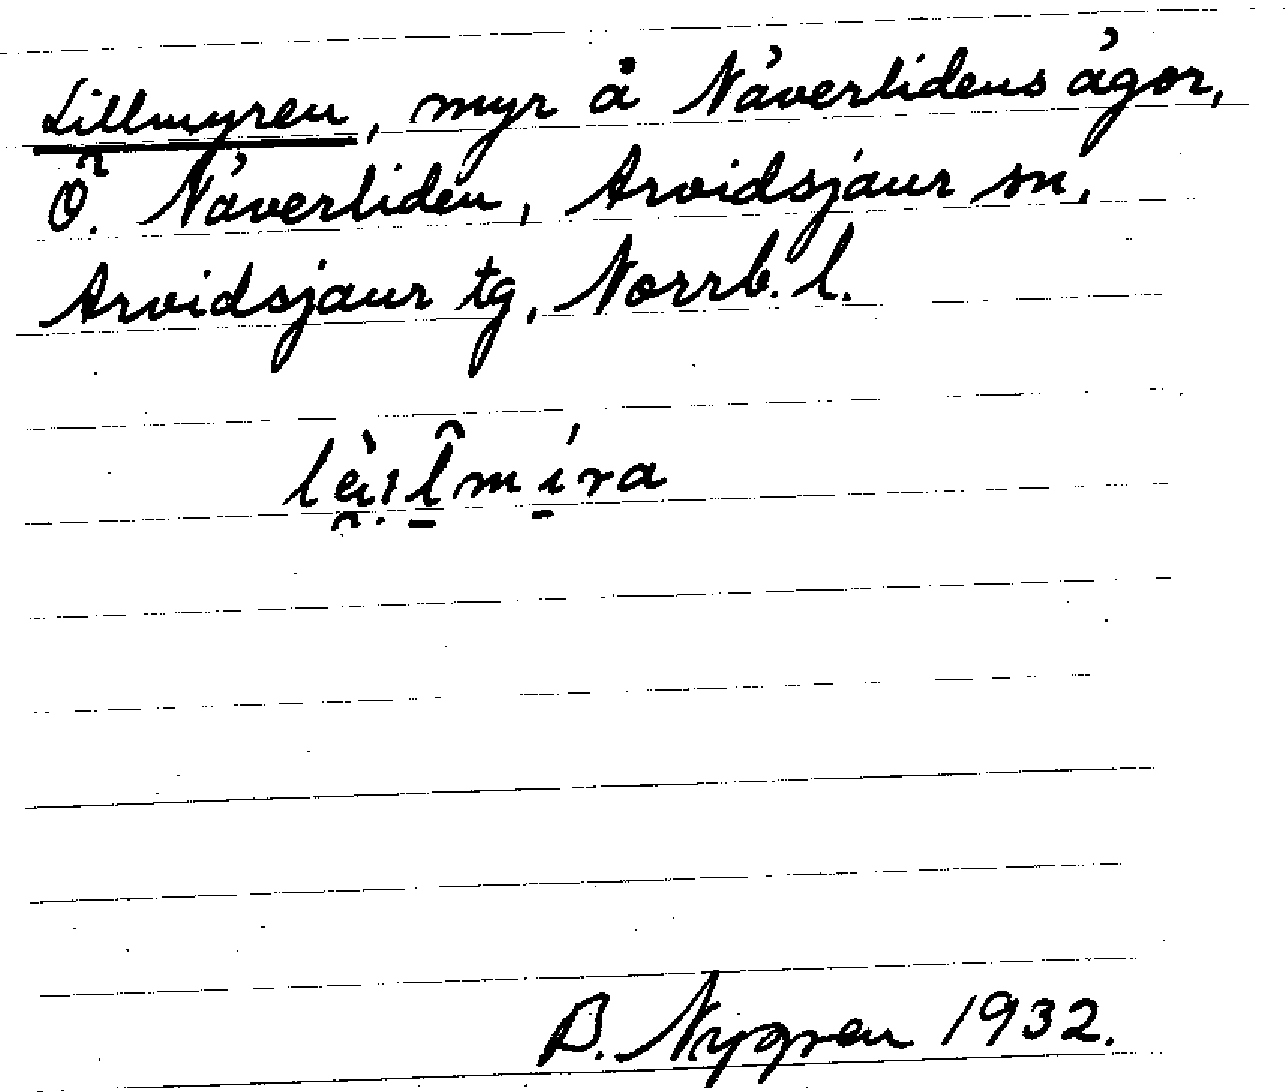 Lillmyren, myr å Näverlidens ägor,
Ö. Näverliden, Arvidsjaur sn,
Arvidsjaur tg, Norrb. l.
B. Nygren 1932.